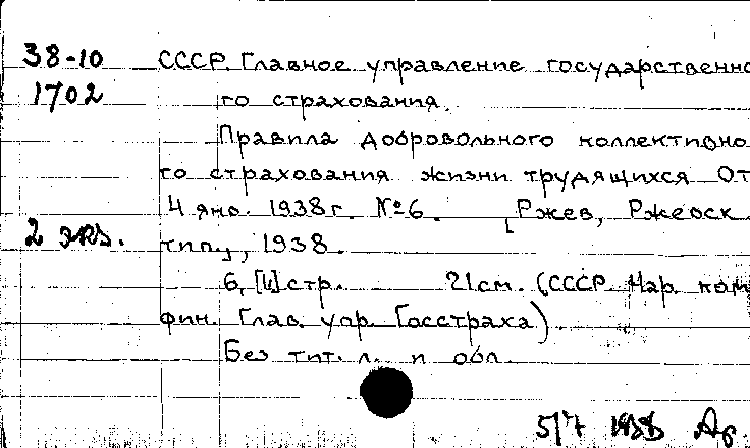 38-10 СССР. Главное управление государственно
1702 го страхования.
Правила добровольного коллективно
го страхования жизни трудящихся От
4 янв. 1938 г. №6. [Ржев, Ржевск.
2 экз. тип.], 1938.
6, [4] стр. 21 см. (СССР. Нар. ком.
фин. Глав. упр. Госстраха)
Без тит. л. и обл.